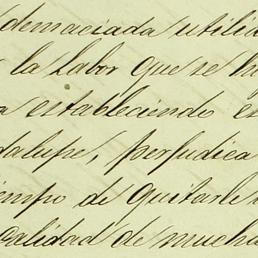 demaciada utilid
la labor que se h
estableciendo e
dalupe, perjudica
empo de quitarle
calidad de mucha